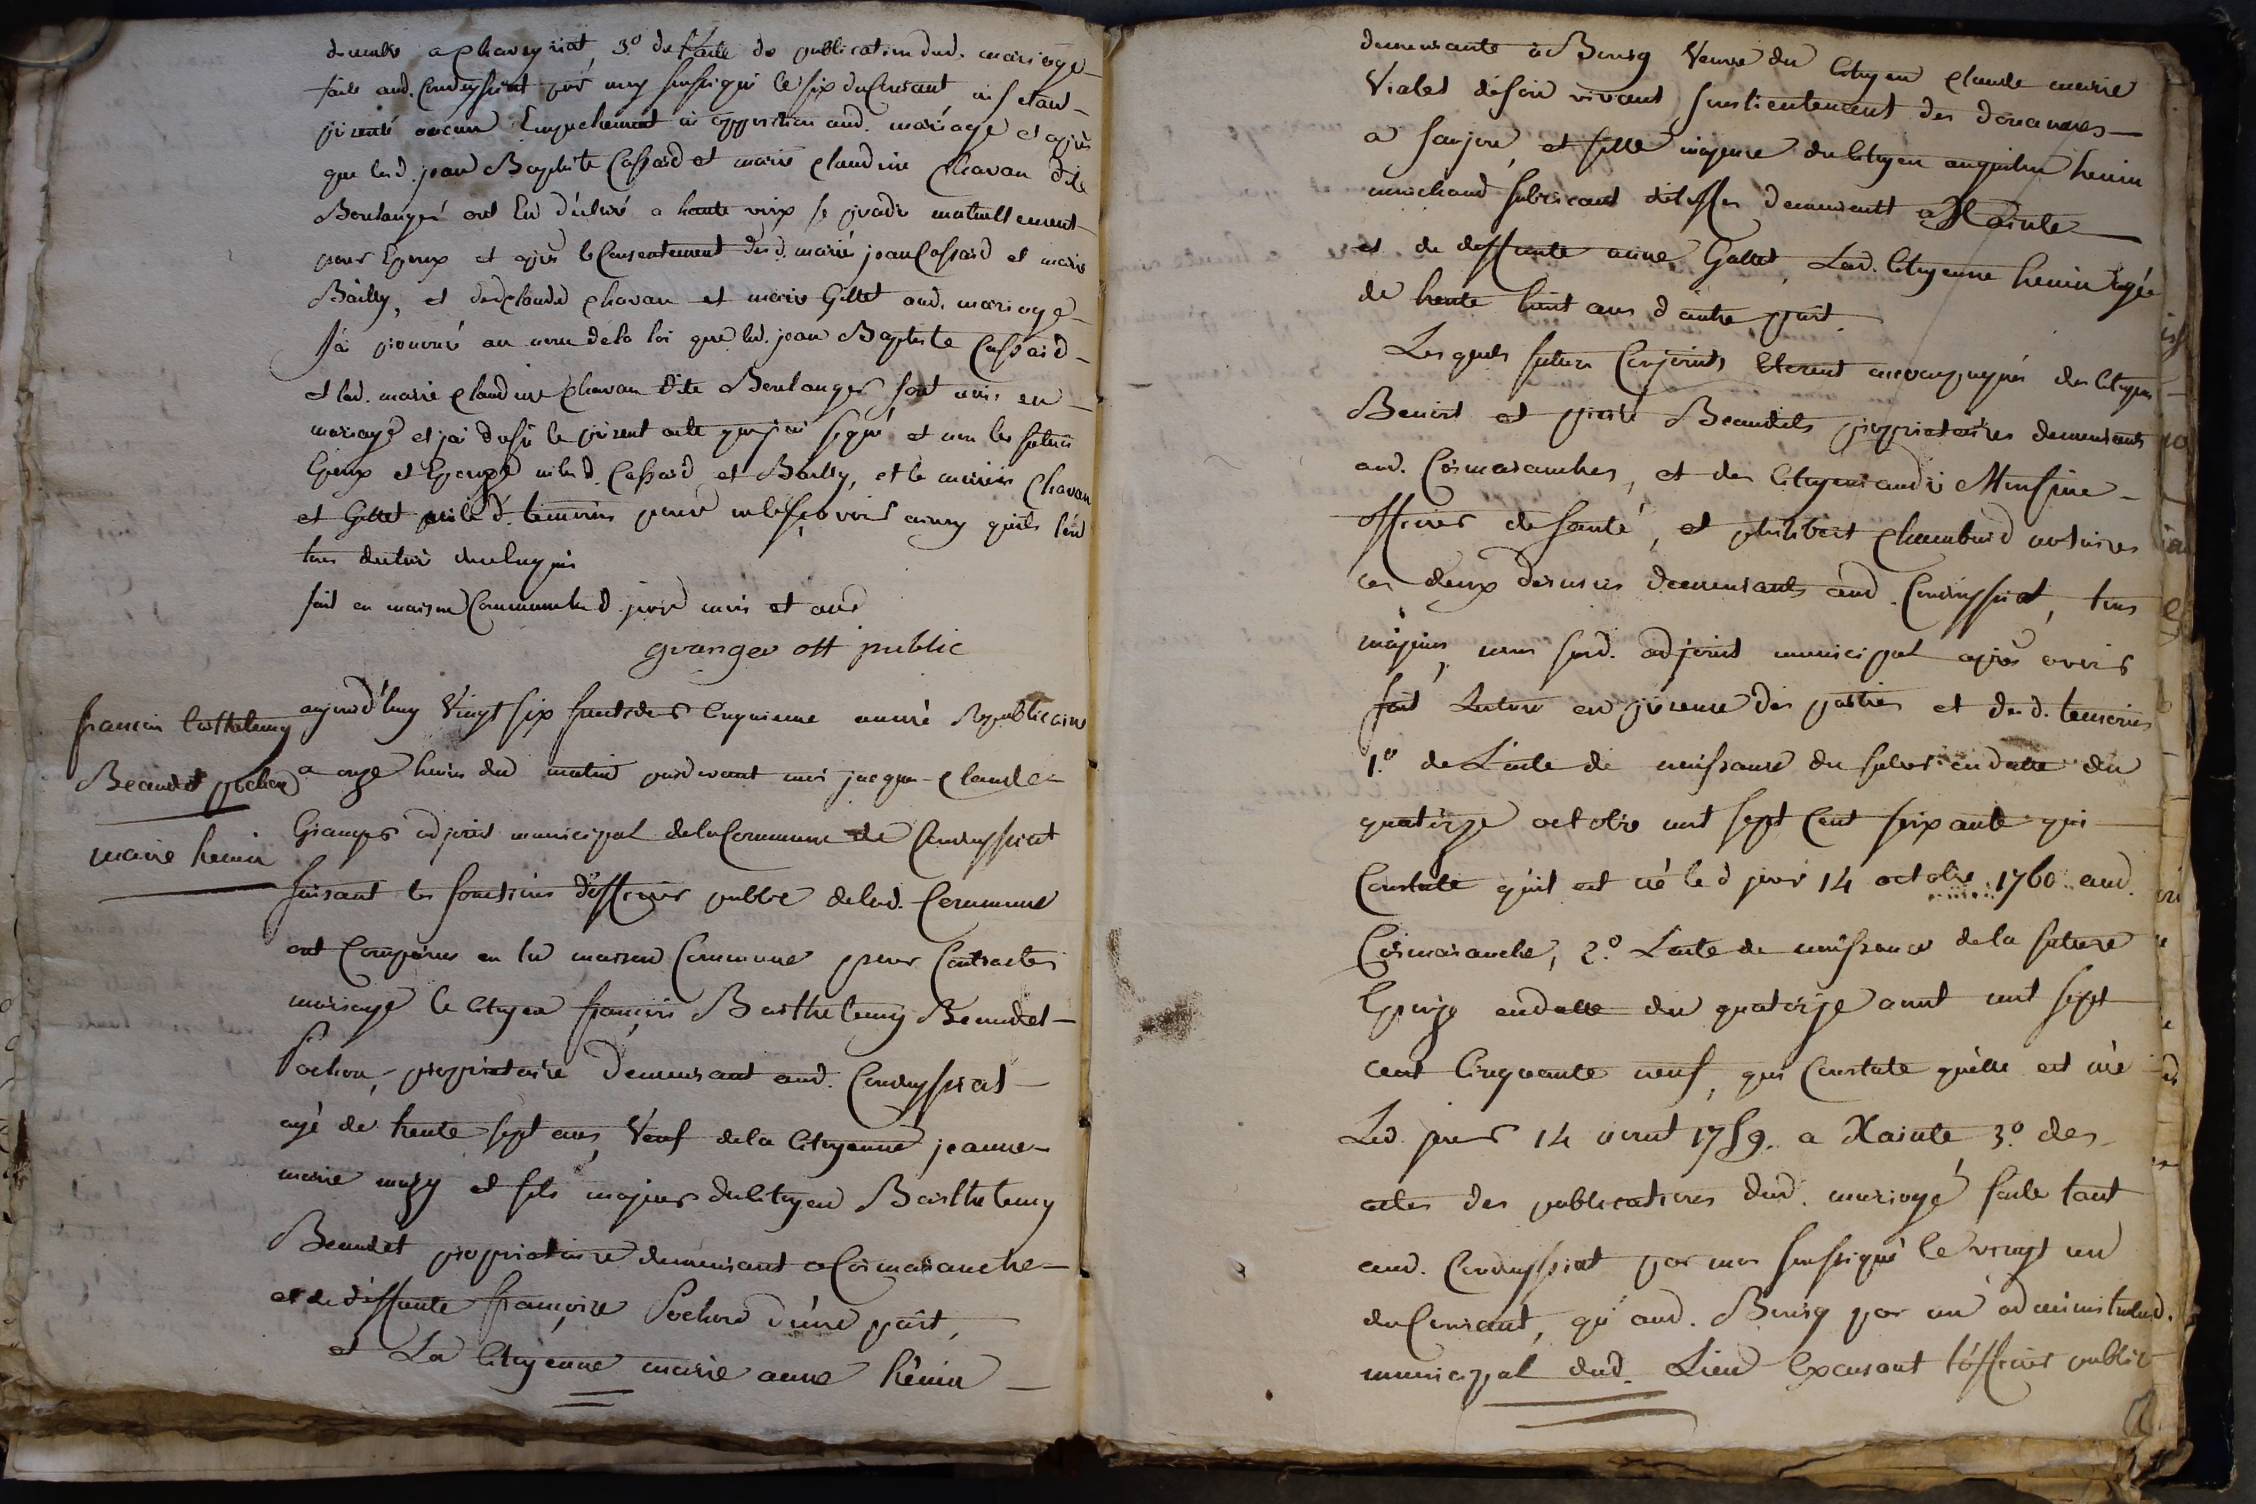 a Chaveyriat, 3.º de l'acte de publication dud. mariage
faite aud. Condeyssiat par moy soussigné le six du Courant, ne s'etant
presenté aucun Empechement ni opposition aud. mariage et après
que led. jean Baptiste Cassard et marie Claudine Chavan dite
Boulanger ont Eu déclaré a haute voix se prendre mutuellement
pour Epoux et après le Consentement desd. mariés jean Cassard et marie
Bailly, et dud Claude Chavan et marie Gillet aud. mariage
J'ai prononcé au nom de la loi que led. jean Baptiste Cassard
et lad. marie Claudine Chavan dite Boulanger sont unis en
mariage et j'ai dressé le présent acte que j'ai signé et non les futurs
Epoux et Epouze ni lesd. Cassard et Bailly, et les mariés Chavan
et Gillet ni lesd. temoins pour ne le sçavoir ainsy qu'ils l'ont
tous declaré
fait en maison Commune led. jour mois et an
granger off public
françois Barthelemy
Beaudet pochon
marie henin
aujourd'huy Vingt six fructidor Cinquieme année Républicaine
a onze heures du matin pardevant moi jacque Claude
Granger adjoint municipal de la Commune de Condeyssiat
faisant les fonctions d'officier public de lad. Commune
ont Comparus en la maison Commune pour Contracter
mariage le Citoyen françois Barthelemy Beaudet
Pochon, propriétaire demeurant aud. Condeyssiat
agé de trente sept ans, Veuf de la Citoyenne jeanne
marie mazy et fils majeur du Citoyen Barthelemy
Beaudet propriétaire demeurant a Cormaranche
et de deffunte françoise Pochon d'une part,
et La Citoyenne marie anne henin
demeurante à Bourg Veuve du Citoyen Claude marie
Vialet de son vivant sous lientement des douannes
a , et fille majeure du Citoyen henin
marchand fabricant d'etoffes demeurant a Xainte
et de deffunte anne Gallet, Lad. Citoyenne henin agée
de trente huit ans d'autre part.
Lesquels futurs Conjoints Etoient accompagnés des Citoyens
Benoit et pierre Beaudets propriétaires demeurants
aud. Cormaranches, et des Citoyens andré
officier de santé, et philibert Chambard notaires
ces deux derniers demeurants aud. Condeyssiat, tous
majeurs, nous susd. adjoint municipal après avoir
fait Lecture en présence des parties et desd. temoins
1.º de L'acte de naissance du futur en datte du
quatorze octobre mil sept Cent soixante qui
Constate qu'il est né led jour 14 octobre 1760 aud.
Cormaranche, 2.º L'acte de naissance de la future
Epouze en datte du quatorze aout mil sept
cent Cinquante neuf, qui Constate qu'elle est née
Led jour 14 aout 1759. a Xainte 3.º des
actes des publications dud. mariage faite tant
aud. Condeyssiat par moi soussigné le vingt un
du Courant, qu'aud. Bourg par un
municipal dud. Lieu Exercant l'officier public